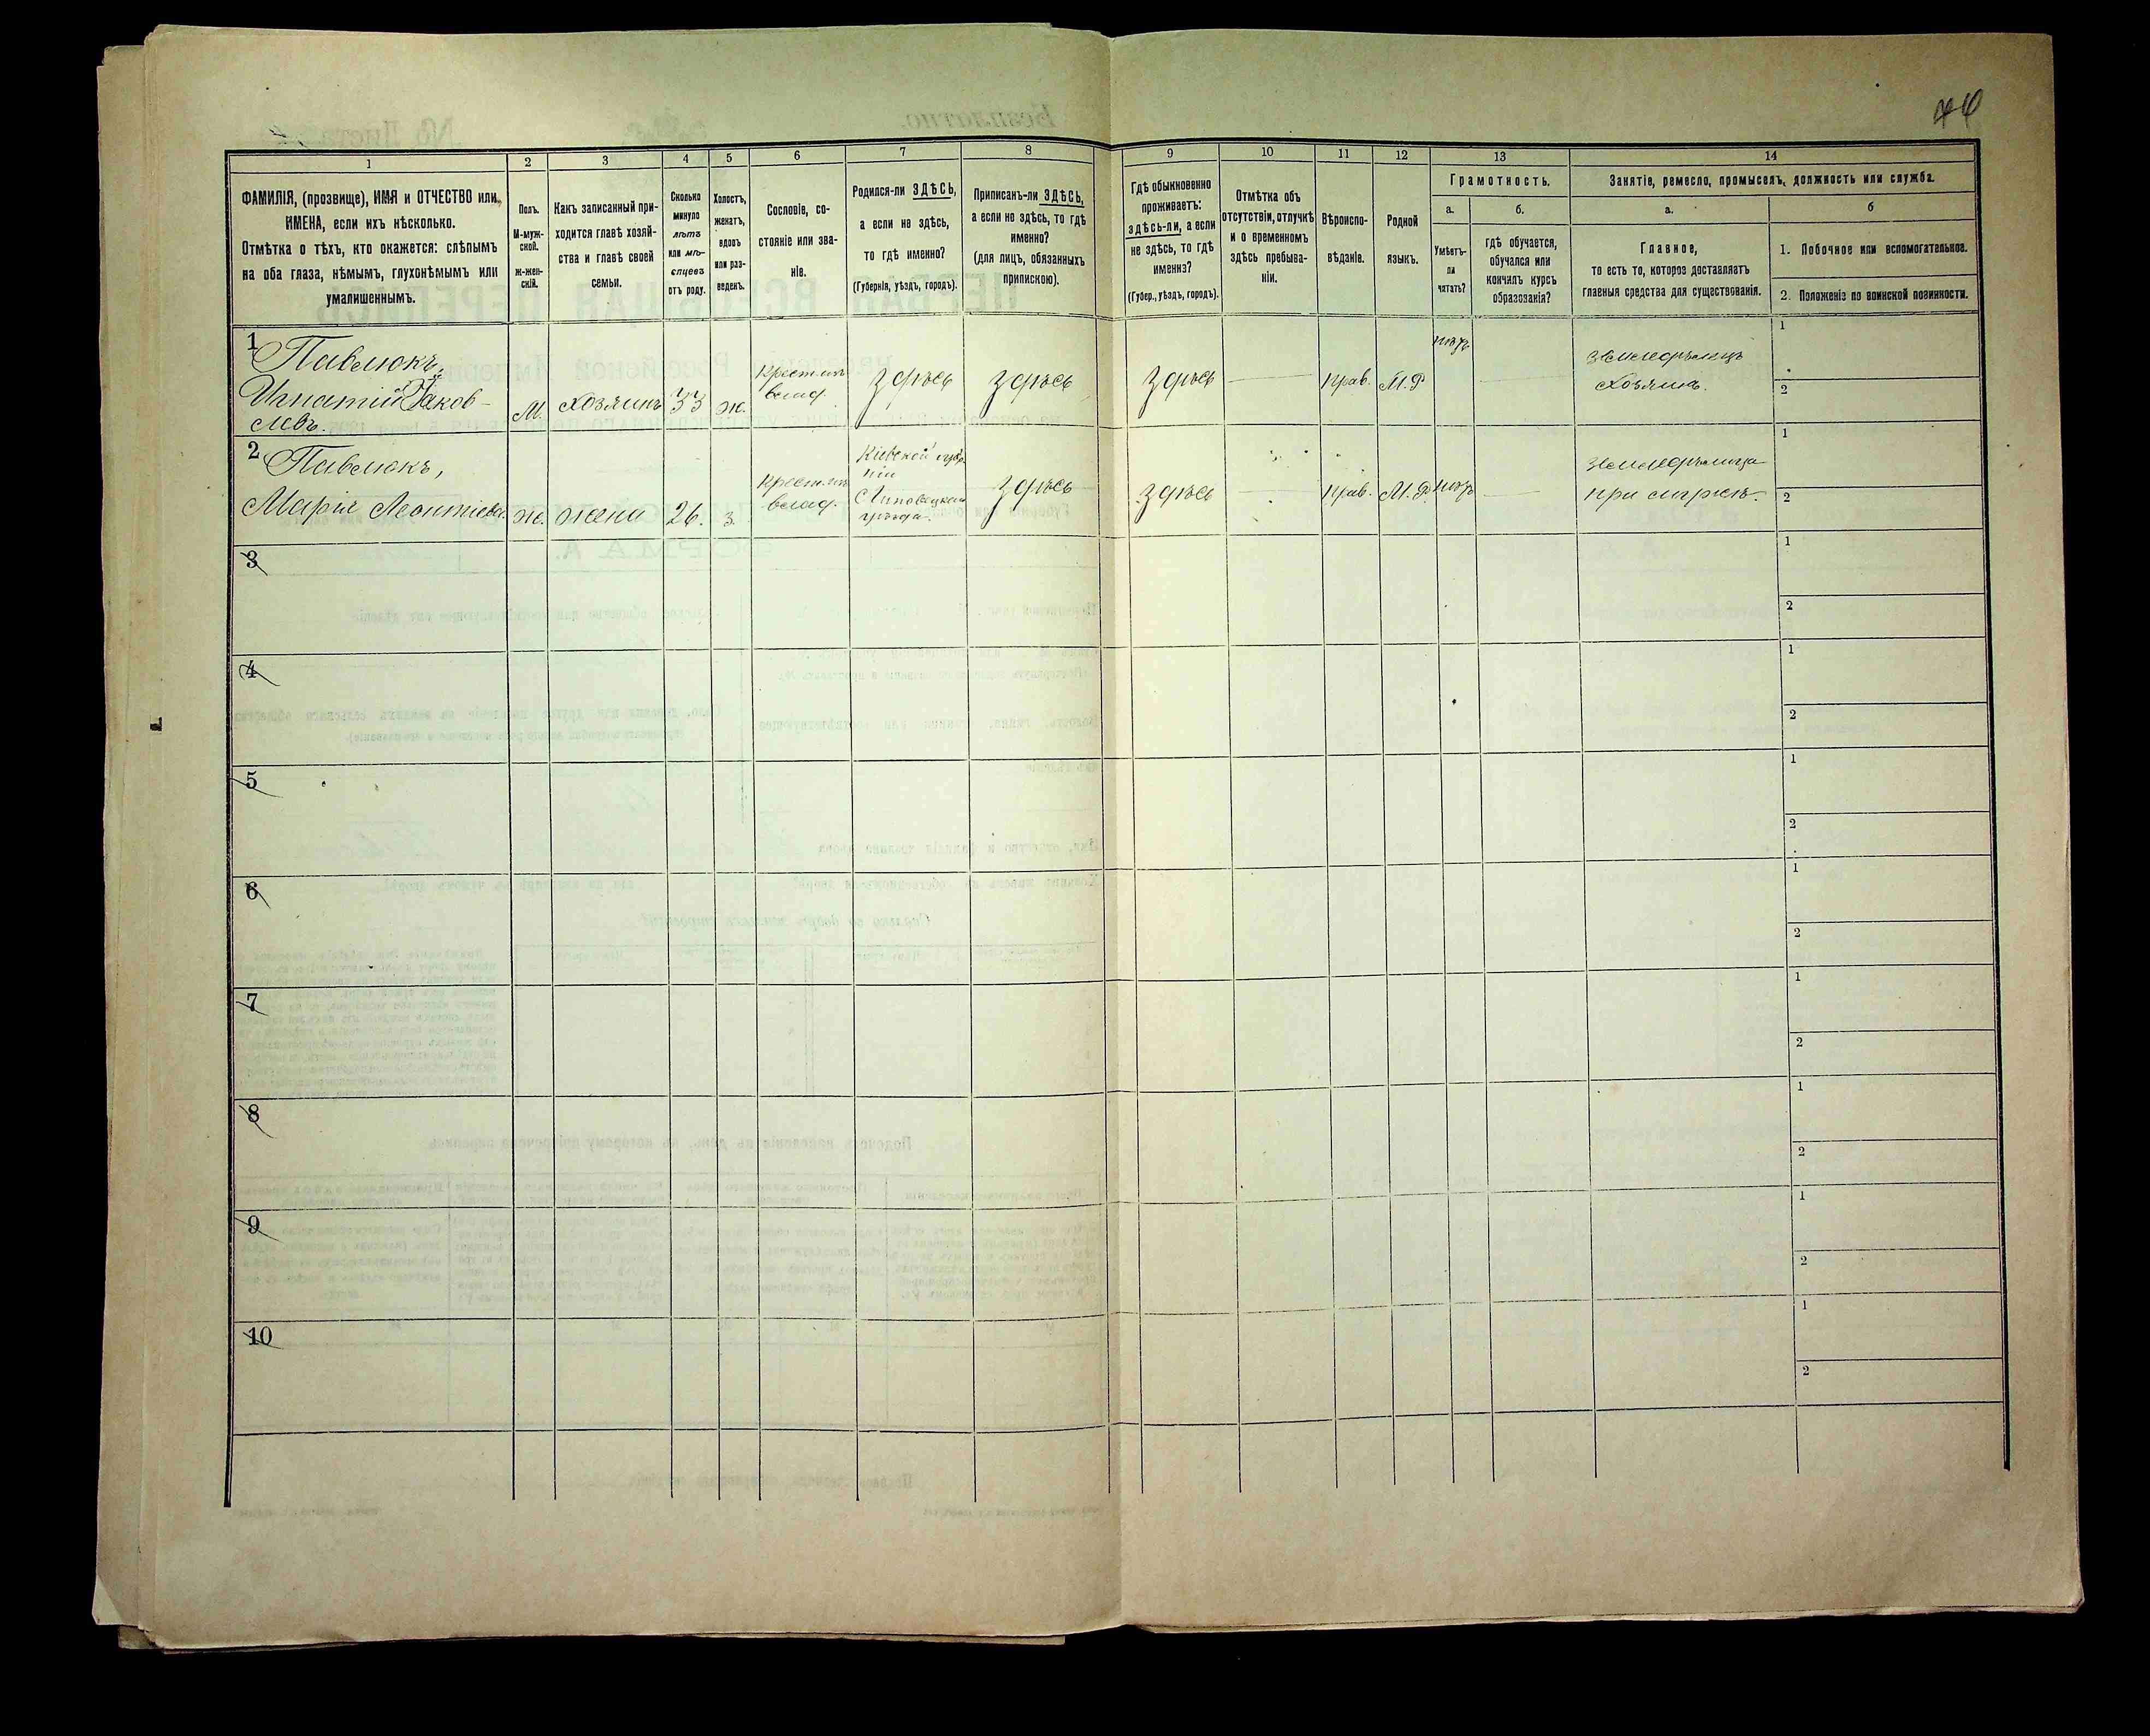 76
1
2
3
4
5
6
7
8
9
10
11
12
13
14
ФАМИЛІЯ, (прозвище), ИМЯ и ОТЧЕСТВО или
ИМЕНА, если ихъ нѣсколько.
Отмѣтка о тѣхъ, кто окажется: слѣпымъ
на оба глаза, нѣмымъ, глухонѣмымъ или
умалишеннымъ.
Полъ.
М-муж-
ской.
ж-жен-
скій.
Какъ записанный при-
ходится главѣ хозяй-
ства и главѣ своей
семьи.
Сколько
минуло
лѣтъ
или мѣ-
сяцевъ
отъ роду.
Холостъ,
женатъ,
вдовъ
или раз-
веденъ.
Сословіе, со-
стояніе или зва-
ніе.
Родился-ли ЗДѢСЬ,
а если не здѣсь,
то гдѣ именно?
(Губернія, уѣздъ, городъ).
Приписанъ-ли ЗДѢСЬ,
а если не здѣсь, то гдѣ
именно?
(для лицъ, обязанныхъ
припискою).
Гдѣ обыкновенно
проживаетъ:
здѣсь-ли, а если
не здѣсь, то гдѣ
именно?
(Губер., уѣздъ, городъ).
Отмѣтка объ
отсутствіи, отлучкѣ
и о временномъ
здѣсь пребыва-
ніи.
Вѣроиспо-
вѣданіе.
Родной
языкъ.
Грамотность.
а.
Умѣетъ-
ли
читать?
б.
гдѣ обучается,
обучался или
кончилъ курсъ
образованія?
Занятіе, ремесло, промыселъ, должность или служба.
а.
Главное,
то есть то, которое доставляетъ
главныя средства для существованія.
б
1. Побочное или вспомогательное.
2. Положеніе по воинской повинности.
1
Павлюкъ,
Игнатій Яков-
левъ.
М.
Хозяинъ
33
ж.
крестьян
влад.
Здѣсь
Здѣсь
Здѣсь
прав.
М.Р
нѣтъ
земледѣлецъ
хозяинъ.
1
2
2
Павлюкъ,
Марія Леонтіева.
Ж.
жена
26.
з.
крестьян
влад.
Кіевской губер
ніи
Липовецкаго
уѣзда.
Здѣсь
Здѣсь
прав.
М.Р.
нѣтъ
земледѣлица
при мужѣ.
1
2
3
1
2
4
1
2
5
1
2
6
1
2
7
1
2
8
1
2
9
1
2
10
1
2